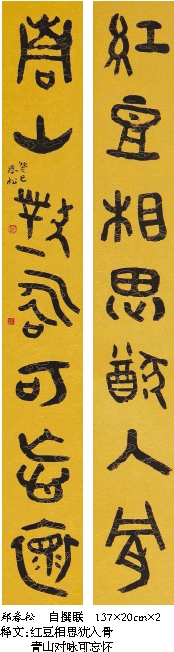 紅豆相思猶入骨
青山對咏可忘懷
癸巳
春松
郑春松 自撰联 137×20cm×2
释文:红豆相思犹入骨
青山对咏可忘怀